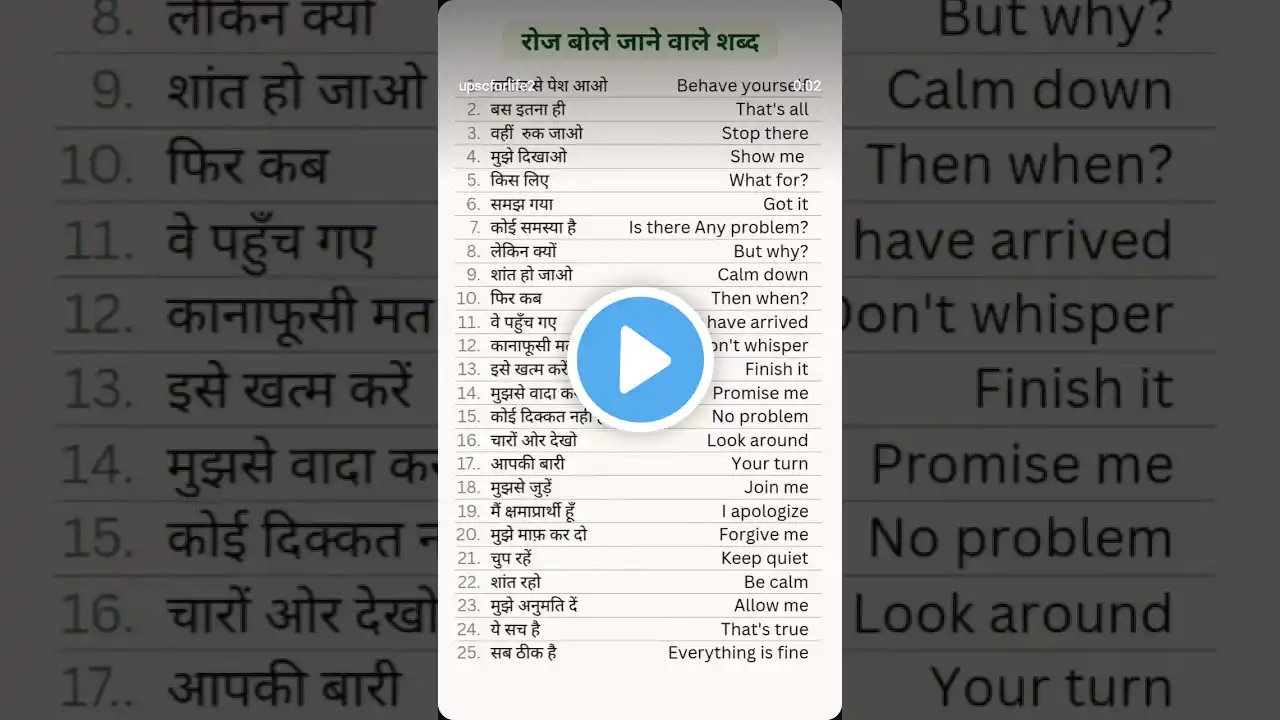 रोज बोले जाने वाले शब्द
upscforlife2 0:02
से पेश आओ Behave yourself
2. बस इतना ही That's all
3. वहीं रुक जाओ Stop there
4. मुझे दिखाओ Show me
5. किस लिए What for?
6. समझ गया Got it
7. कोई समस्या है Is there Any problem?
8. लेकिन क्यों But why?
9. शांत हो जाओ Calm down
10. फिर कब Then when?
11. वे पहुँच गए have arrived
12. कानाफूसी whisper
13. इसे खत्म करें Finish it
14. मुझसे वादा Promise me
15. कोई दिक्कत नही No problem
16. चारों ओर देखो Look around
17.. आपकी बारी Your turn
18. मुझसे जुड़ें Join me
19. मैं क्षमाप्रार्थी हूँ I apologize
20. मुझे माफ़ कर दो Forgive me
21. चुप रहें Keep quiet
22. शांत रहो Be calm
23. मुझे अनुमति दें Allow me
24. ये सच है That's true
25. सब ठीक है Everything is fine
8. लेकिन क्यों But why?
9. शांत हो जाओ Calm down
10. फिर कब Then when?
11. वे पहुँच गए have arrived
12. कानाफूसी मत Don't whisper
13. इसे खत्म करें Finish it
14. मुझसे वादा Promise me
15. कोई दिक्कत No problem
16. चारों ओर देखो Look around
17.. आपकी बारी Your turn